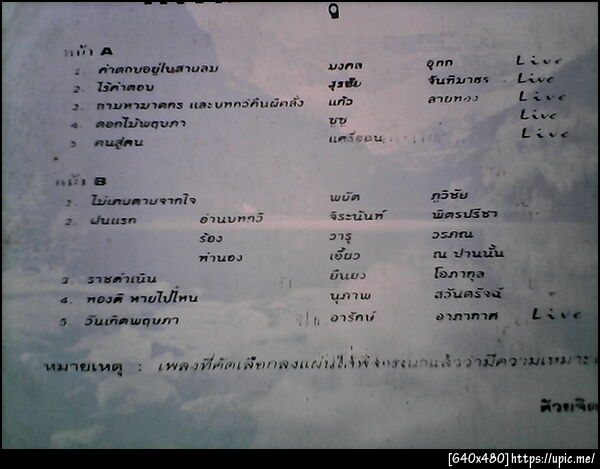 หน้า A
1. คำตอบอยู่ในสายลม มงคล อุทก Live
2. ไร้คำตอบ สุรชัย จันทิมาธร Live
3. ถามหามาตคร และบทกวีคืนผีคลั่ง แก้ว ลายทอง Live
4. ดอกไม้พฤษภา ซูซู Live
5. คนสู่คน แฮมเมอร์ Live
หน้า B
1. ไม่เคยตายจากใจ พยัต ภูวิชัย
2. ฝนแรก อ่านบทกวี จิระนันท์ พิตรปรีชา
ร้อง วารุ วรภณ
ทำนอง เขี้ยว ณ ปานนั้น
3. ราชดำเนิน ยืนยง โอภากุล
4. ทองดี หายไปไหน นุภาพ สวันตรัจฉ์
5. วันเกิดพฤษภา อารักษ์ อาภากาศ Live
หมายเหตุ : เพลงที่คัดเลือกลงแผ่นได้พิจารณาแล้วว่ามีความเหมาะ
ด้วยจิต
[640x480]https://upic.me/